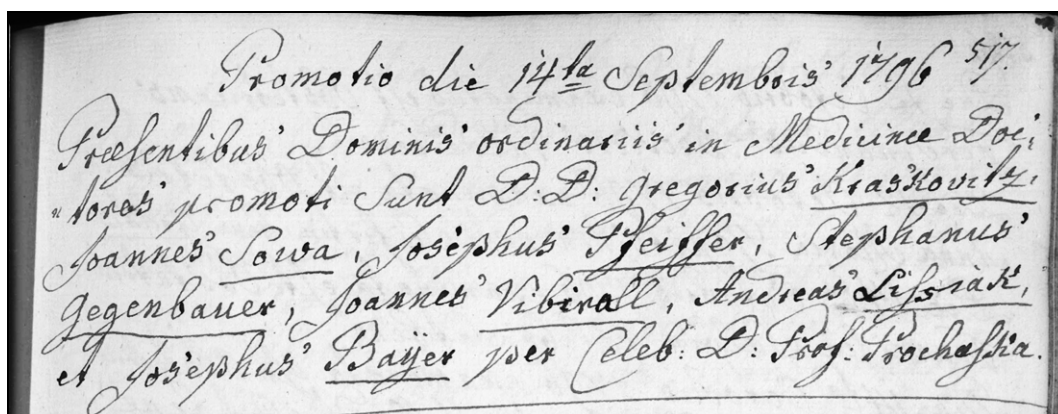 Promotio die 14ta Septembris 1796 517.
Præsentibus Dominis ordinariis in Medicinæ Doc-
"tores promoti sunt D: D: Gregorius Kraskovitz,
Joannes Sowa, Josephus Pfeiffer, Stephanus
Gegenbauer, Joannes Vibirall, Andreas Lissiak,
et Josephus Baÿer per Celeb: D: Prof: Prochaska.